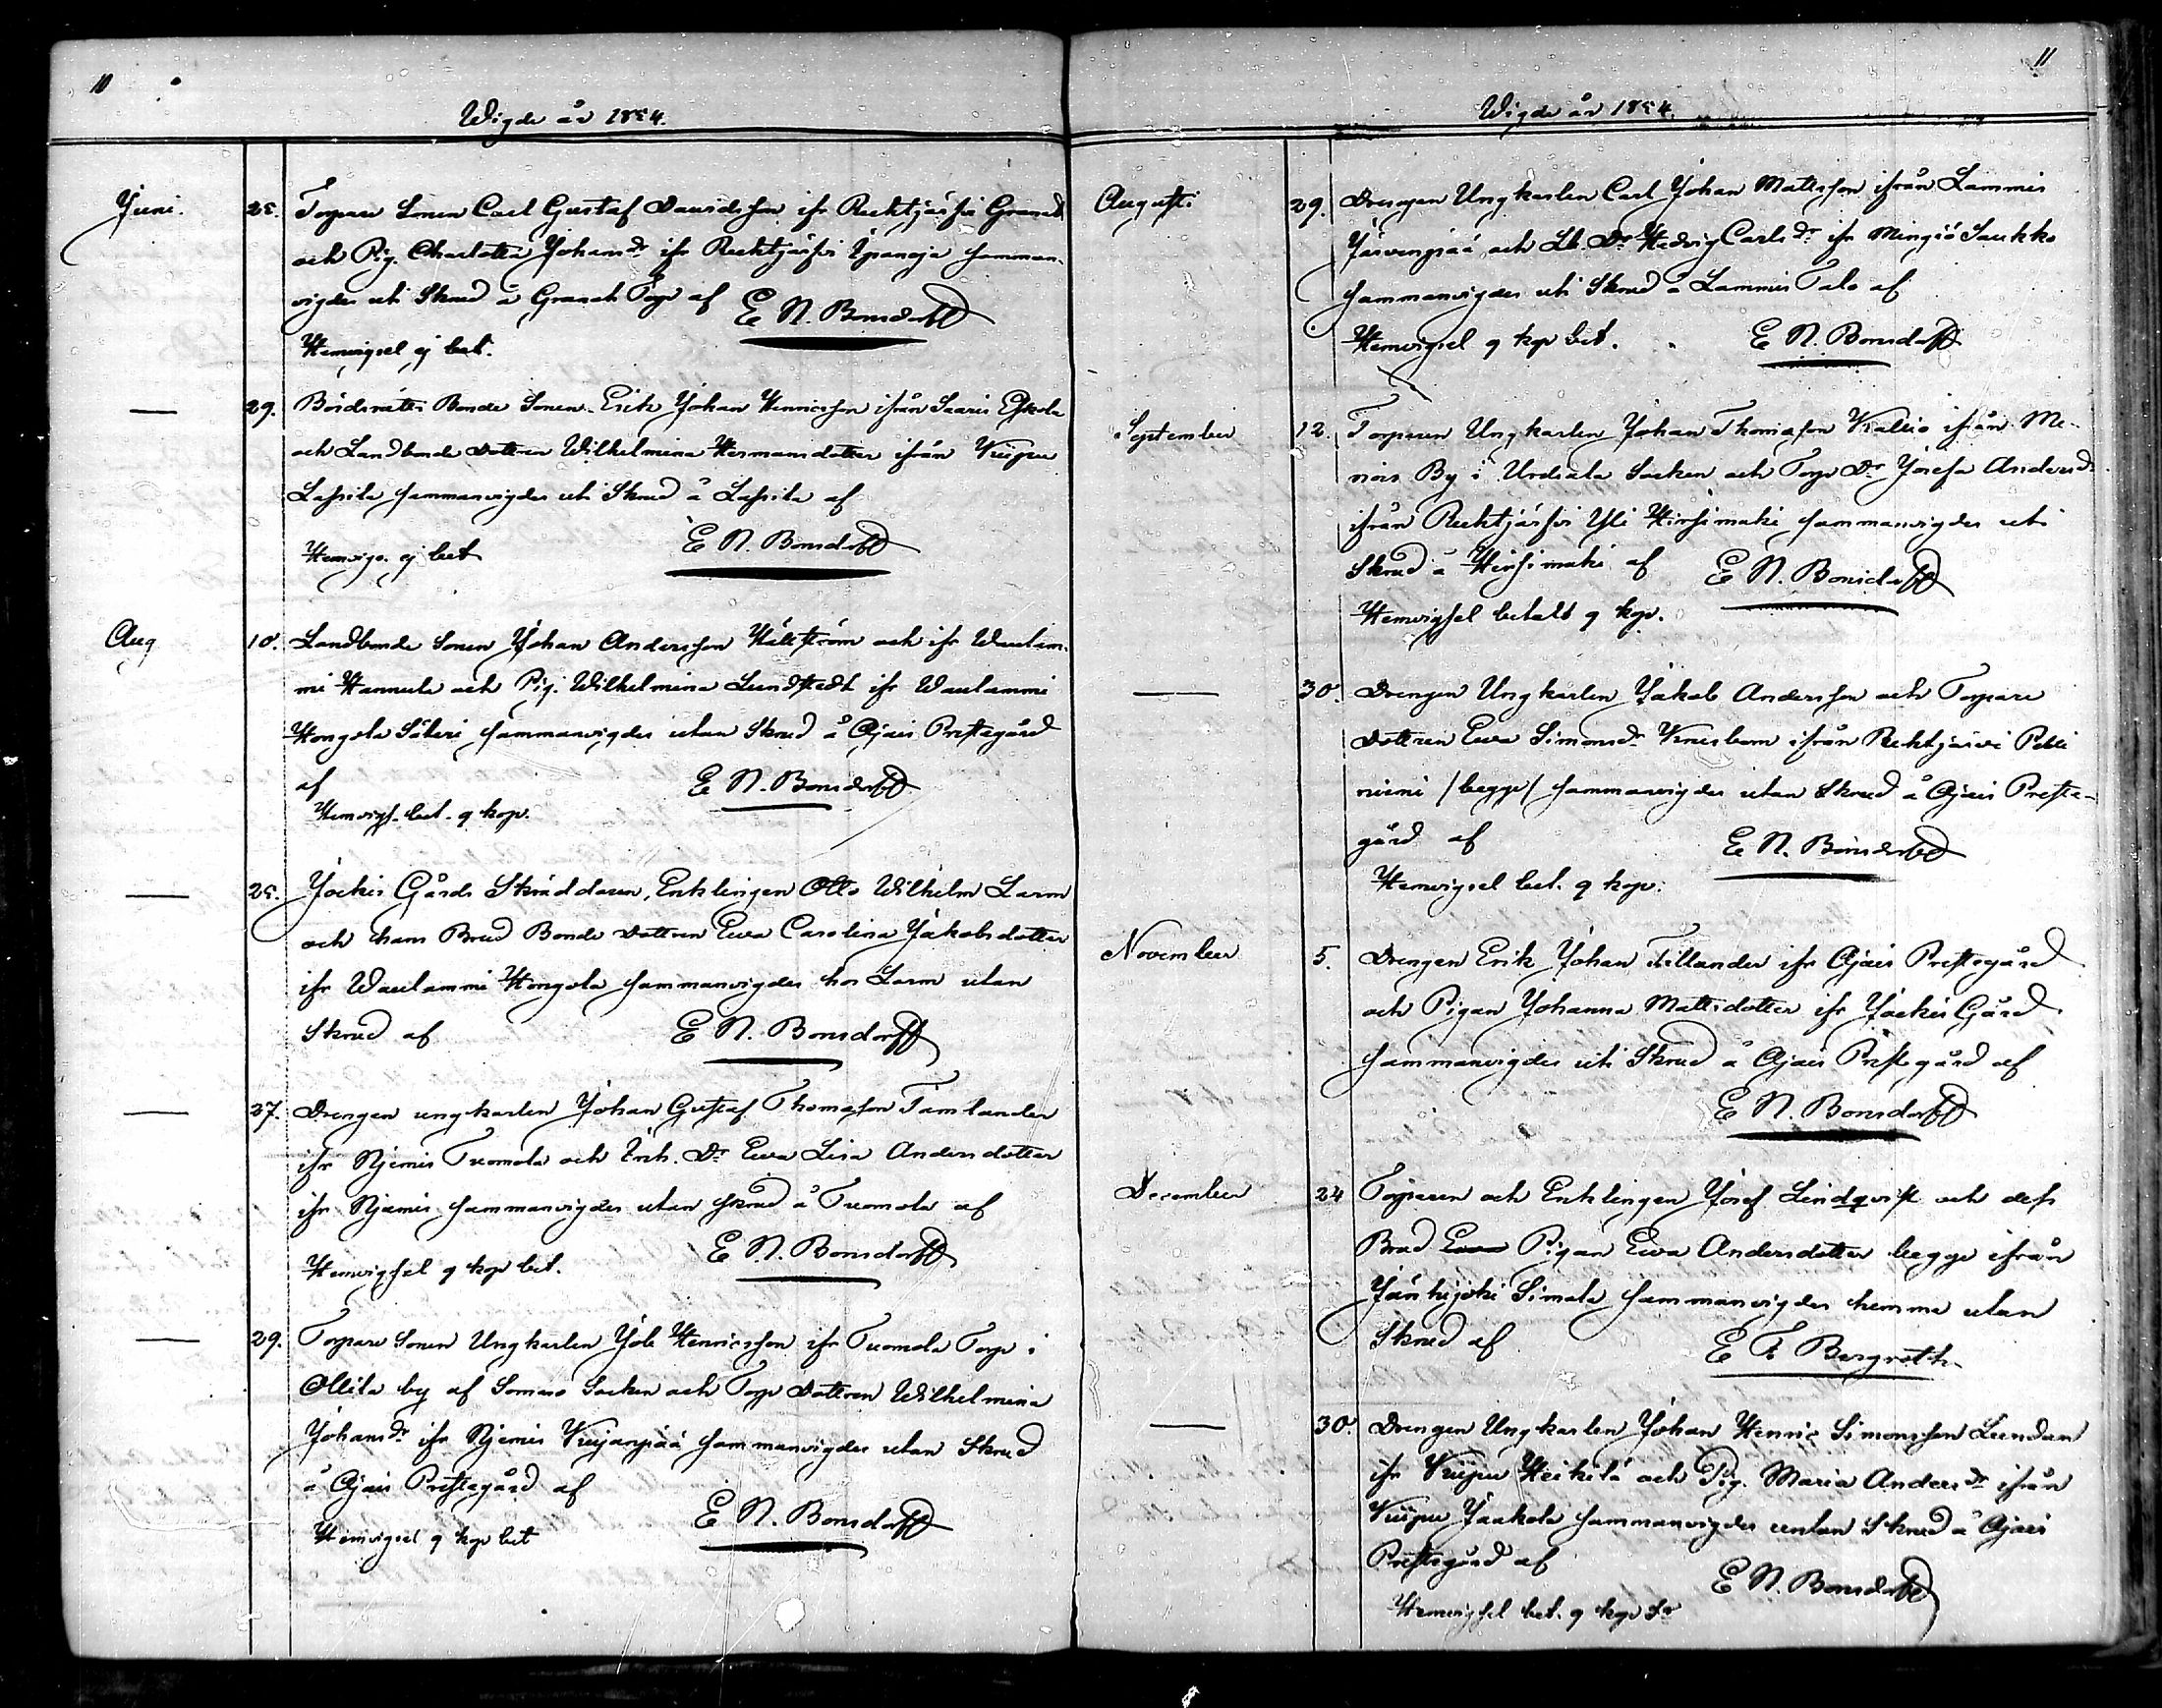 10
Wigde år 1854.
Juni.
25. Torpare Sonen Carl Gustaf Davidsson ifr Rehtijärfvi Granat
och Pig. Charlotta Johansdr ifr Rehtijärfvi Ypanoja samman-
vigdes uti Skrud å Granat Torp af E N. Bonsdorff
Hemvigsel ej bet.
— 29. Bördsrätts Bonde Sonen Erik Johan Henricsson ifrån Saaris Eskola
och Landbonde Dottren Wilhelmina Hermansdotter ifrån Kuipu
Lassila sammanvigdes uti Skrud å Lassila af
E N. Bonsdorff
Hemvigs. ej bet
Aug
10. Landbonde Sonen Johan Andersson Hällström och ifr Waulam-
mi Hannula och Pig. Wilhelmina Lundstedt ifr Waulammi
Hongola Säteri sammanvigdes utan Skrud å Ojais Prestegård
af E N. Bonsdorff
Hemvigs. bet. 9 kop.
— 25. Jockis Gårds Skräddaren, Enklingen Otto Wilhelm Larm
och hans Brud Bonde Dottren Eva Carolina Jakobsdotter
ifr Waulammi Hongola sammanvigdes hos Larm utan
Skrud af E N. Bonsdorff
— 27. Drengen ungkarlen Johan Gustaf Thomasson Tamlander
ifr Njemis Tuomola och Inh. Dr Eva Lisa Andersdotter
ifr Njemis sammanvigdes utan skrud å Tuomola af
E N. Bonsdorff
Hemvigsel 9 kop bet.
— 29. Torpare Sonen Ungkarlen Job Henricsson ifr Tuomola Torp i
Ollila by af Somero Socken och Torp Dottren Wilhelmina
Johansdr ifr Njemis Kujanpää sammanvigdes utan Skrud
å Ojais Prestegård af
E N. Bonsdorff
Hemvigsel 9 kop bet
11
Wigde år 1854.
Augusti
29. Drengen Ungkarlen Carl Johan Mattsson ifrån Lammis
Järvenpää och Lb. Dr Hedvig Carlsdr ifr Mingiö Saukko
sammanvigdes uti Skrud å Lammis Talo af
Hemvigsel 9 kop bet. E N. Bonsdorff
September
12. Torparen Ungkarlen Johan Thomasson Kallio ifrån Me-
nois By i Urdiala Socken och Torp Dr Josefa Andersdr
ifrån Rehtijärfvi Yli Hirsimäki sammanvigdes uti
Skrud å Hirsimäki af E N. Bonsdorff
Hemvigsel betalt 9 kop.
— 30. Drengen Ungkarlen Jakob Andersson och Torpare
Dottren Eva Simonsdr ifrån Rehtijärvi Peli
niemi /begge/ sammanvigdes utan Skrud å Ojais Preste-
gård af E N. Bonsdorff
Hemvigsel bet. 9 kop.
November
5. Drengen Erik Johan Tillander ifr Ojais Prestegård
och Pigan Johanna Mattsdotter ifr Jockis Gård
sammanvigdes uti Skrud å Ojais Prestegård af
E N. Bonsdorff
December
24 Torparen och Enklingen Josef Lindqvist och dess
Brud Eva Pigan Eva Andersdotter begge ifrån
Jänhijoki Simola sammanvigdes hemma utan
Skrud af E F Bergroth
— 30. Drengen Ungkarlen Johan Henric Simonsson Lundan
ifr Kuipu Heikilä och Pig. Maria Andersdr ifrån
Kuipu Jaakola sammanvigdes untan Skrud å Ojais
Prestegård af
E N. Bonsdorff
Hemvigsel bet. 9 kop Sr